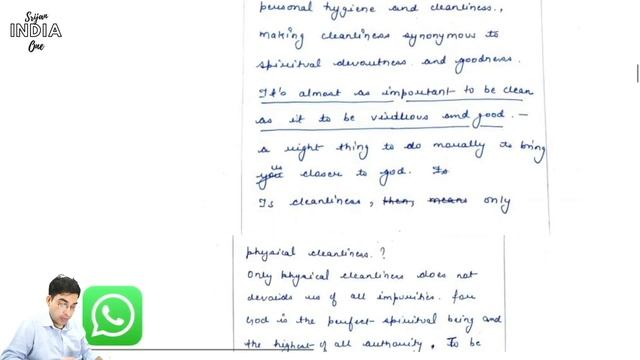 Srijan
INDIA
One
personal hygiene and cleanliness.,
making cleanliness synonymous to
spiritual devoutness and goodness.
It's almost as important to be clean
as it to be virdtuous and good. -
a right thing to do morally to bring
you us closer to god. Is
Is cleanliness, then, means only
physical cleanliness. ?
Only physical cleanliness does not
devoids us of all impurities. for
God is the perfect spiritual being and
the highest of all authority. To be